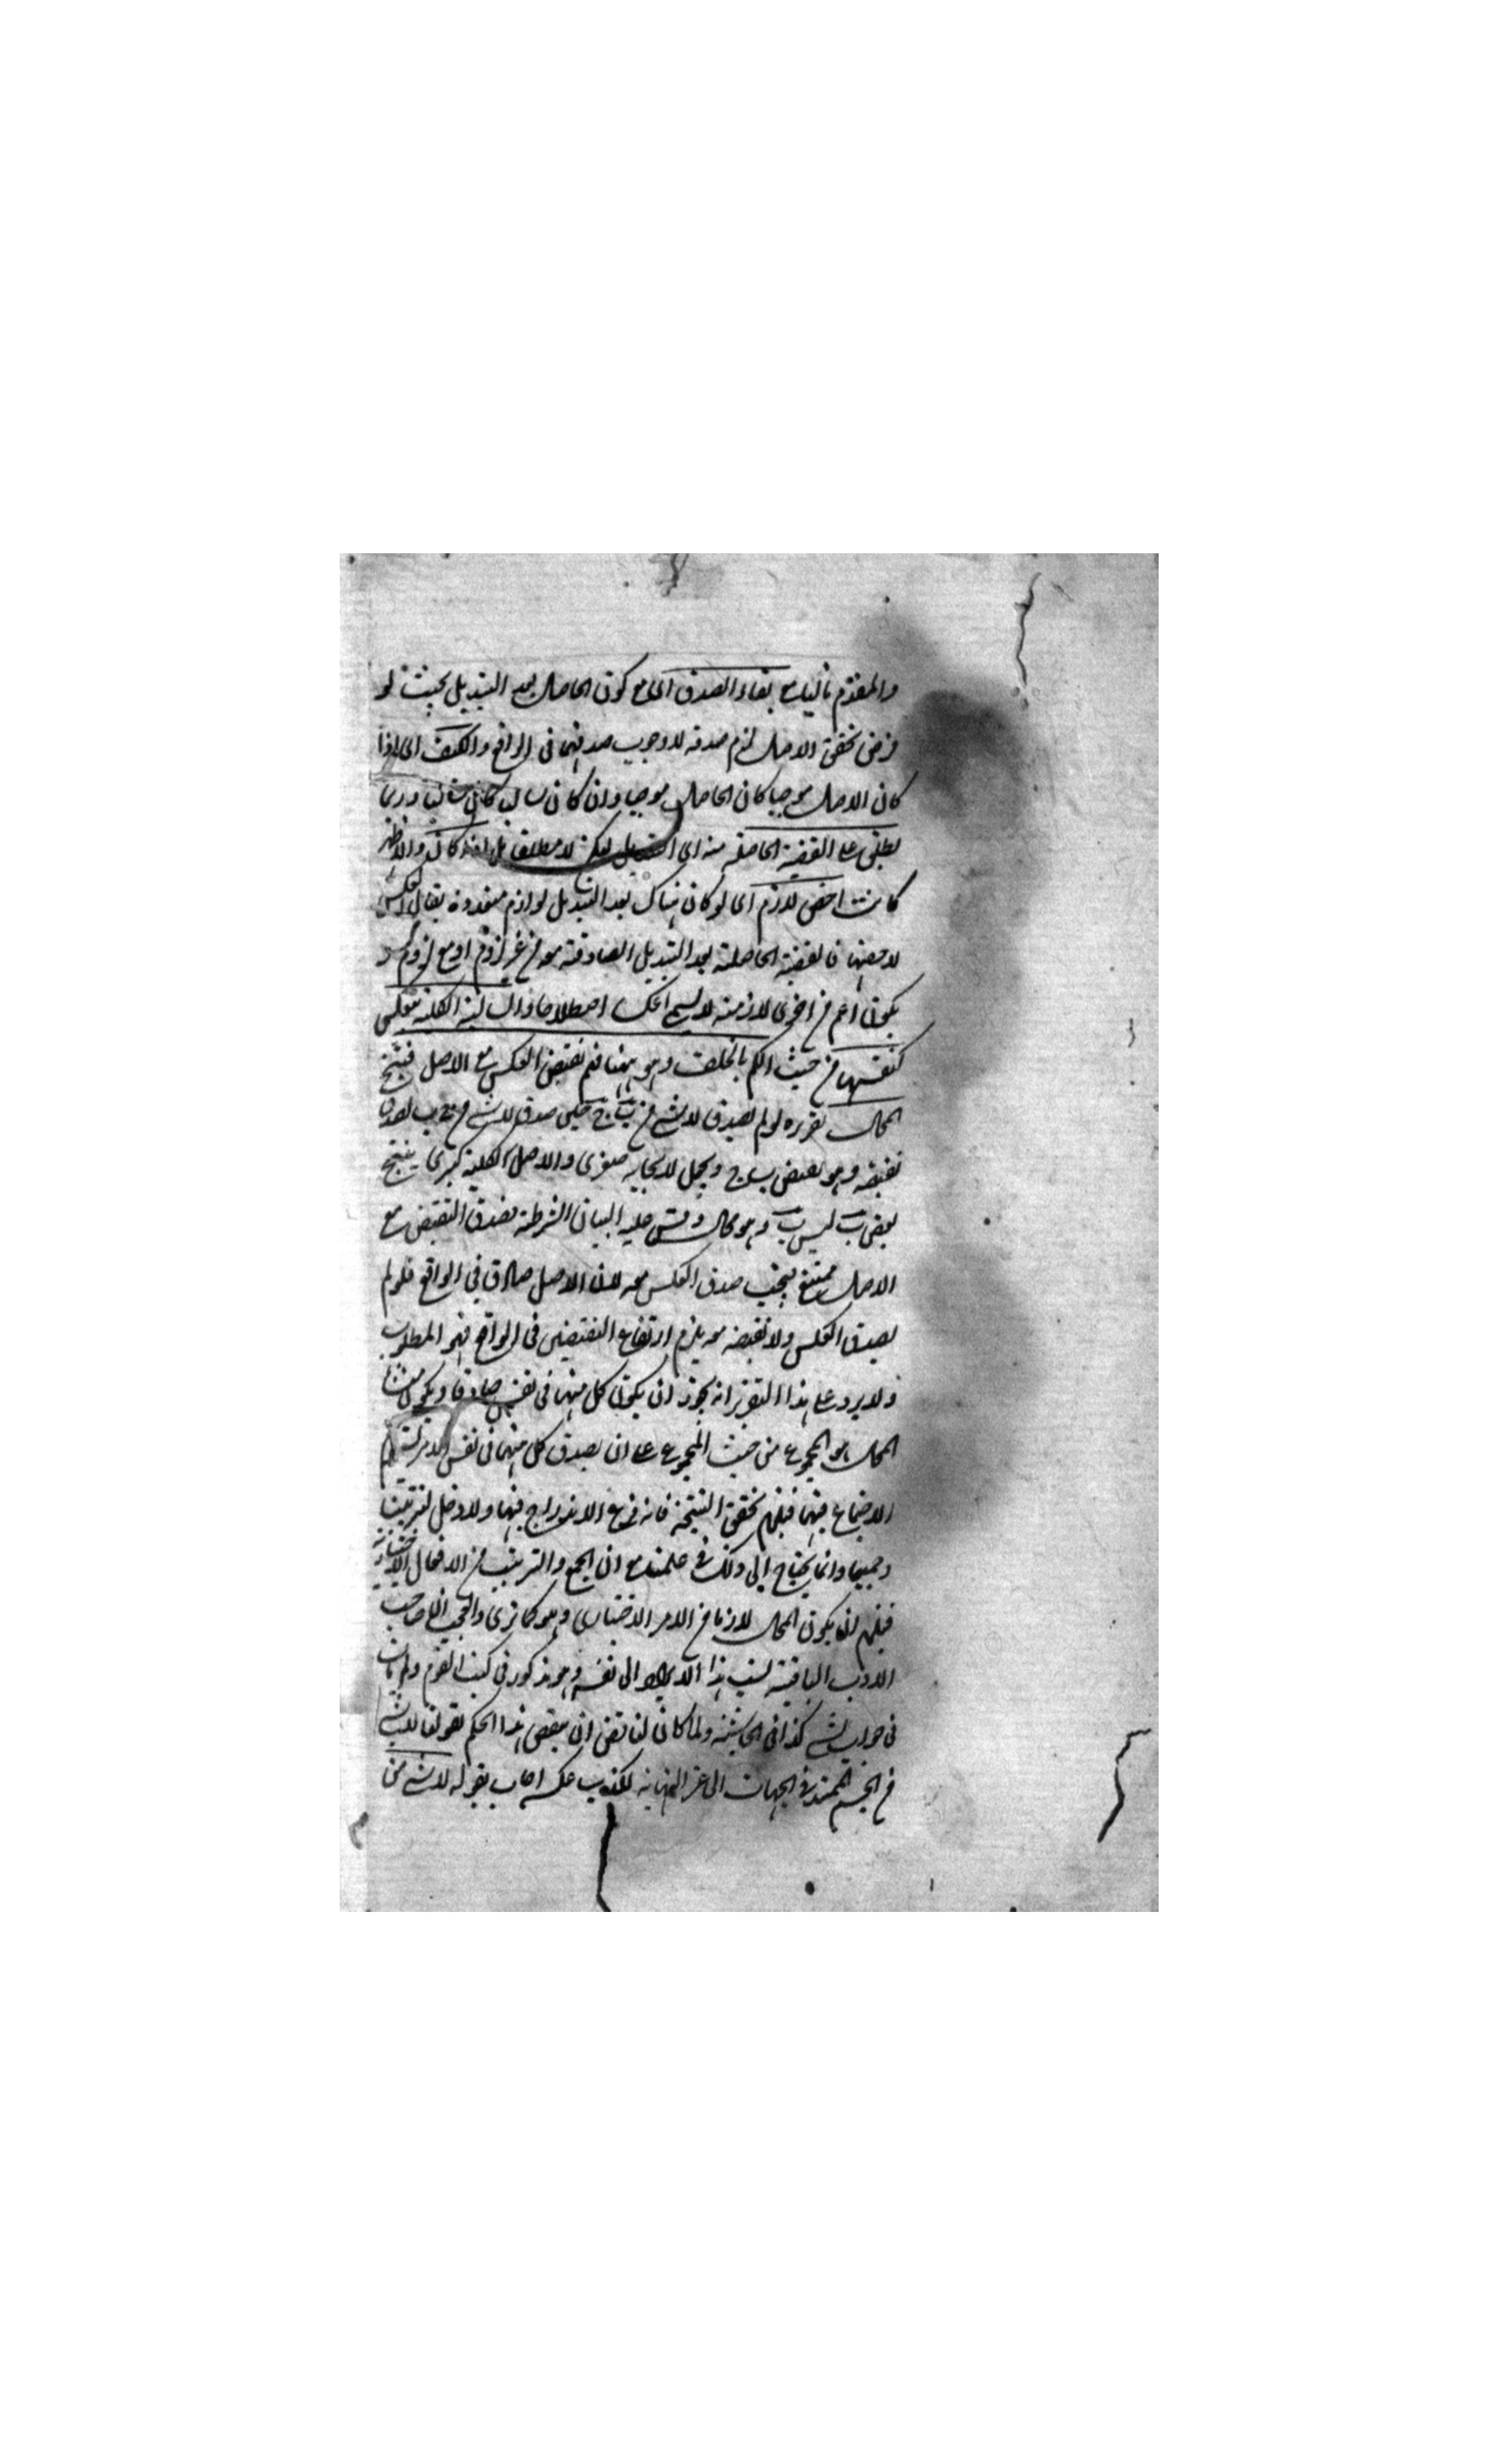 والمقدم تاليا مع بقاء الصدق اى مع كون الحاصل بعد التبديل بحيث لو
فرض تحقق الاصل لزم صدقه لا وجوب صدقهما فى الواقع والكيف اى اذا
كان الاصل موجبا كان الحاصل موجبا وان كان سالبا كان سالبا وربما
يطلق على القضية الحاصلة منه اى التبديل لكن لا مطلقا بل اذا كانت
كانت اخص لازم اى لو كان هناك بعد التبديل لوازم متعددة يقال العكس
لاخصها فالقضية الحاصلة بعد التبديل الصادقة معه من غير لزوم او مع لزوم
يكون اعم من اخرى لازمة لا يسمى العكس اصطلاحا والسالبة الكلية تنعكس
كنفسها من حيث الكم بالخلف وهو ههنا ضم نقيض العكس مع الاصل فينتج
المحال تقريره لو لم يصدق لا شئ من ب ج حين صدق لا شئ من ج ب لصدق
نقيضه وهو بعض ب ج ويجعل لايجابه صغرى والاصل لكليته كبرى ينتج
بعض ب ليس ب وهو محال وقس عليه البيان الشرطية فصدق النقيض مع
الاصل ممتنع فيجب صدق العكس معه لان الاصل صادق فى الواقع فلو لم
يصدق العكس ولا نقيضه معه يلزم ارتفاع النقيضين فى الواقع فهو المطلوب
ولا يرد على هذا التقرير انه يجوز ان يكون كل منهما فى نفسه صادقا ويكون منشأ
المحال هو المجموع من حيث المجموع على ان يصدق كل منهما فى نفس الامر يستلزم
الاجتماع فيها فيلزم تحقق النتيجة فانه فرع الاندراج فيها ولا دخل لترتيبنا
وجمعنا وانما يحتاج الى ذلك فى علمنا مع ان الجمع والترتيب من الافعال الاختيارية
فيلزم ان يكون المحال لازما من الامر الاختيارى وهو كما ترى والعجب ان صاحب
الاداب الباقية نسب هذا الايراد الى نفسه وهو مذكور فى كتب القوم ولم يأت
فى جوابه بشئ كذا فى الحاشية ولما كان لناقض ان ينقض هذا الحكم بقولنا لا شئ
من الجسم بممتد فى الجهات الى غير النهاية لكذب عكسه اجاب بقوله لا شئ من